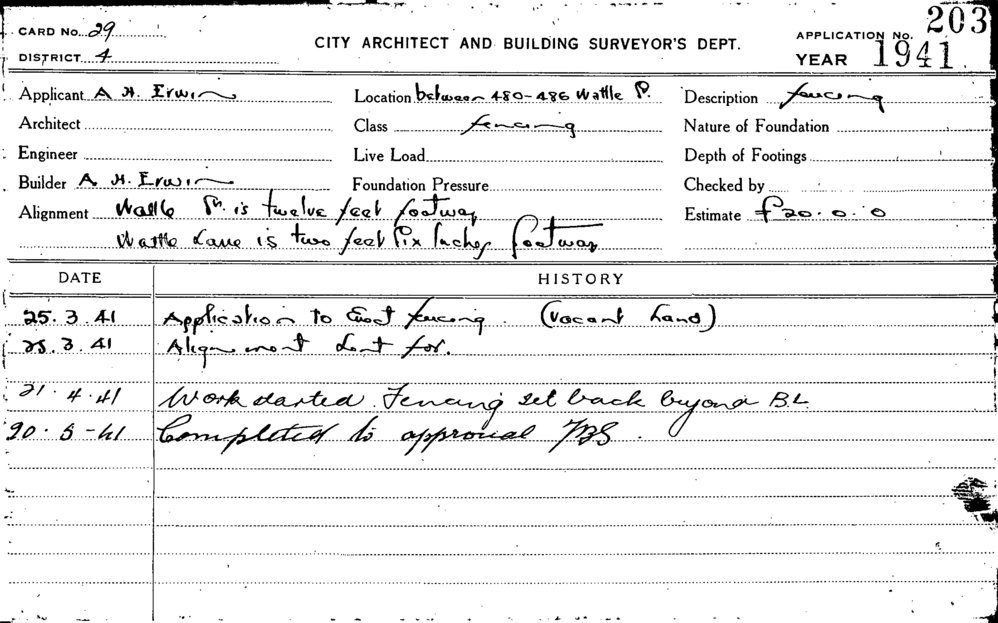 CARD No. 29
DISTRICT 4
CITY ARCHITECT AND BUILDING SURVEYOR'S DEPT.
APPLICATION No. 203
YEAR 1941
Applicant A H. Erwin
Location between 480-486 Wattle St.
Description fencing
Architect
Class fencing
Nature of Foundation
Engineer
Live Load
Depth of Footings
Builder A H. Erwin
Foundation Pressure
Checked by
Alignment Wattle St. is twelve feet footway
Estimate £20.0.0
Wattle Lane is two feet six inches footway
DATE HISTORY
25.3.41 Application to Erect fencing (Vacant Land)
25.3.41 Alignment sent for.
21.4.41 Work started. Fencing set back beyond B.L.
20-5-41 Completed to approval